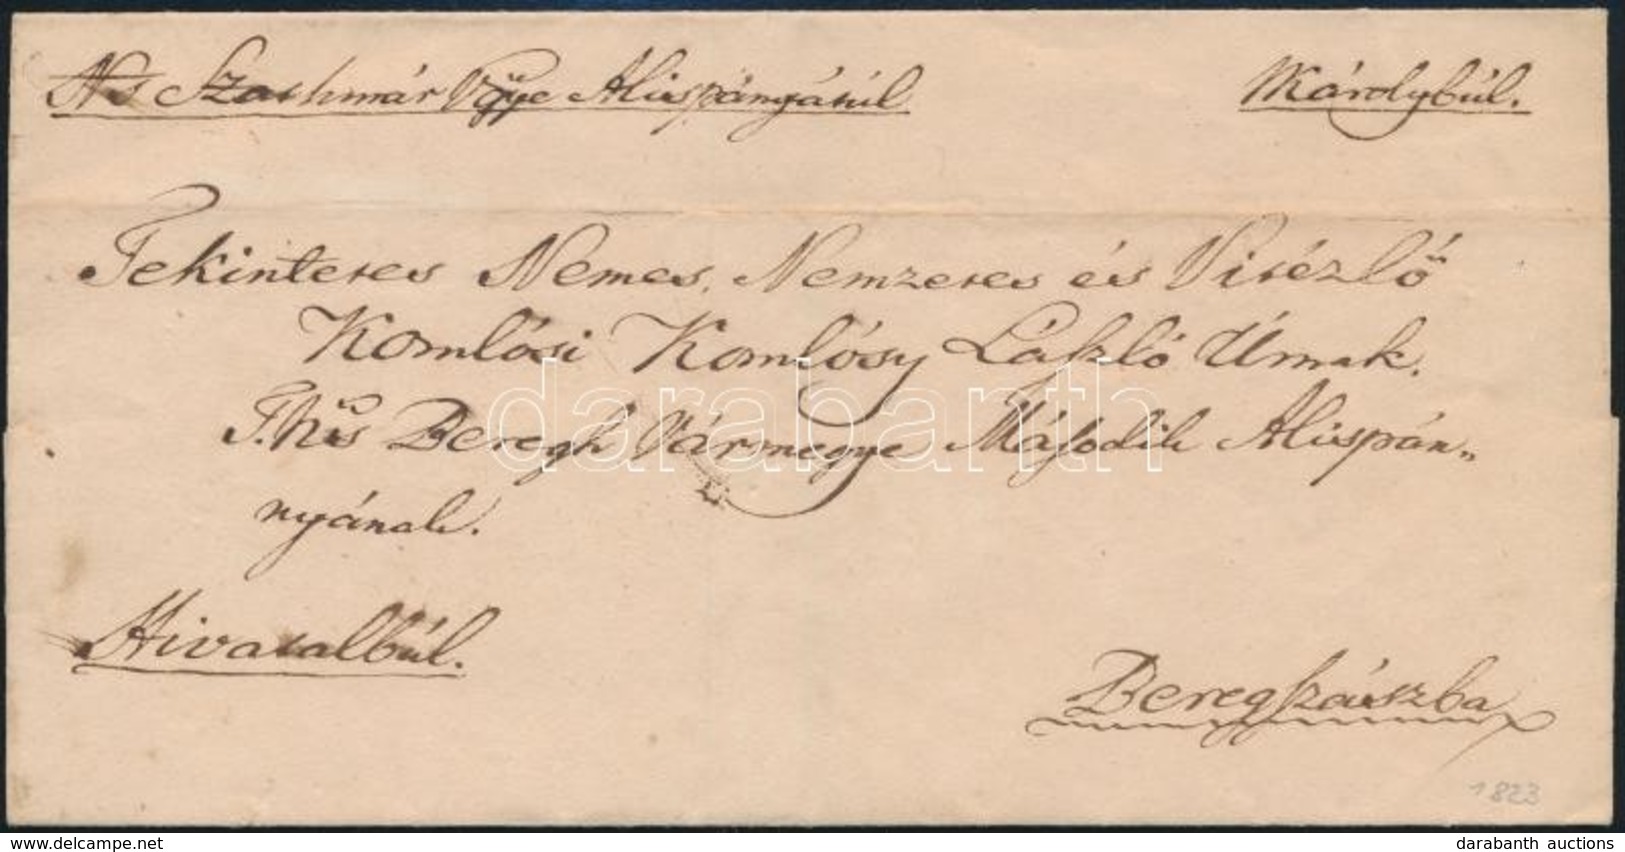 Ns Szathmár Vgye Alispányátúl
Károlybúl.
Tekintetes Nemes, Nemzetes és Vitézlő
Komlósi Komlósy László Úrnak.
T. Ns Beregh Vármegye Második Alispán„
nyának.
Hivatalbúl.
Beregszászba
1823
darabanth
delcampe.net
darabanth auctions